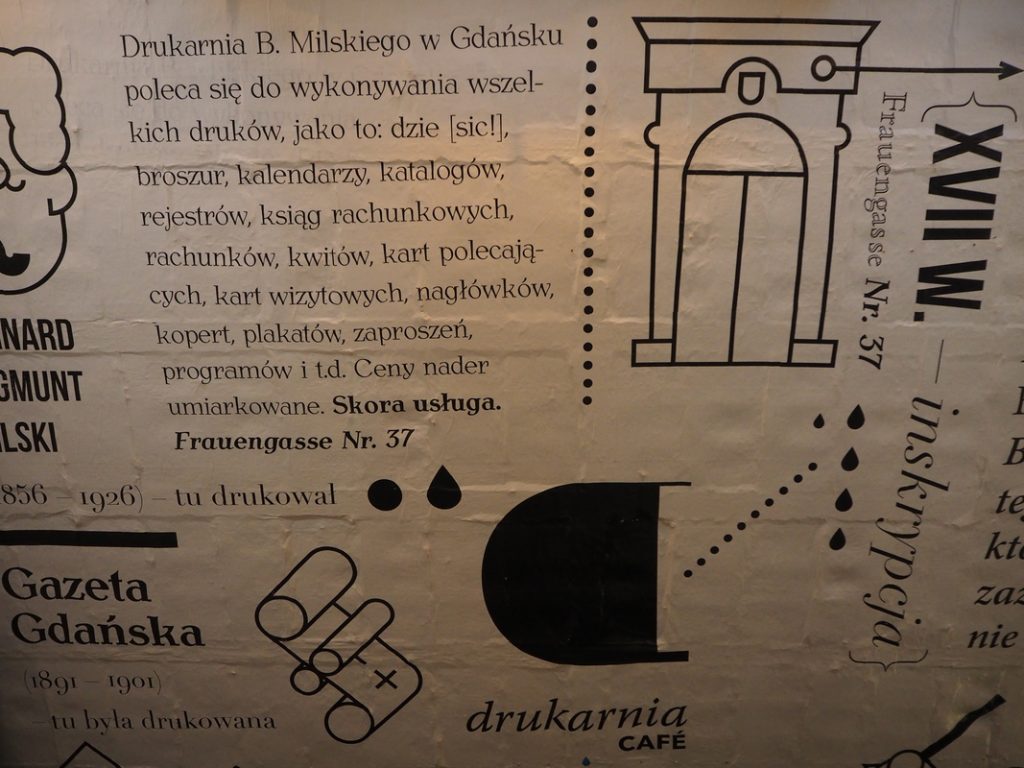 Drukarnia B. Milskiego w Gdańsku
poleca się do wykonywania wszel-
kich druków, jako to: dzie [sic!],
broszur, kalendarzy, katalogów,
rejestrów, ksiąg rachunkowych,
rachunków, kwitów, kart polecają-
cych, kart wizytowych, nagłówków,
kopert, plakatów, zaproszeń,
programów i t.d. Ceny nader
umiarkowane. Skora usługa.
Frauengasse Nr. 37
NARD
GMUNT
ILSKI
856 – 1926) – tu drukował
Gazeta
Gdańska
(1891 – 1901)
– tu była drukowana
drukarnia
CAFÉ
Frauengasse Nr. 37
{XVII W. — inskrypcja}
B
te
kt
zaz
nie